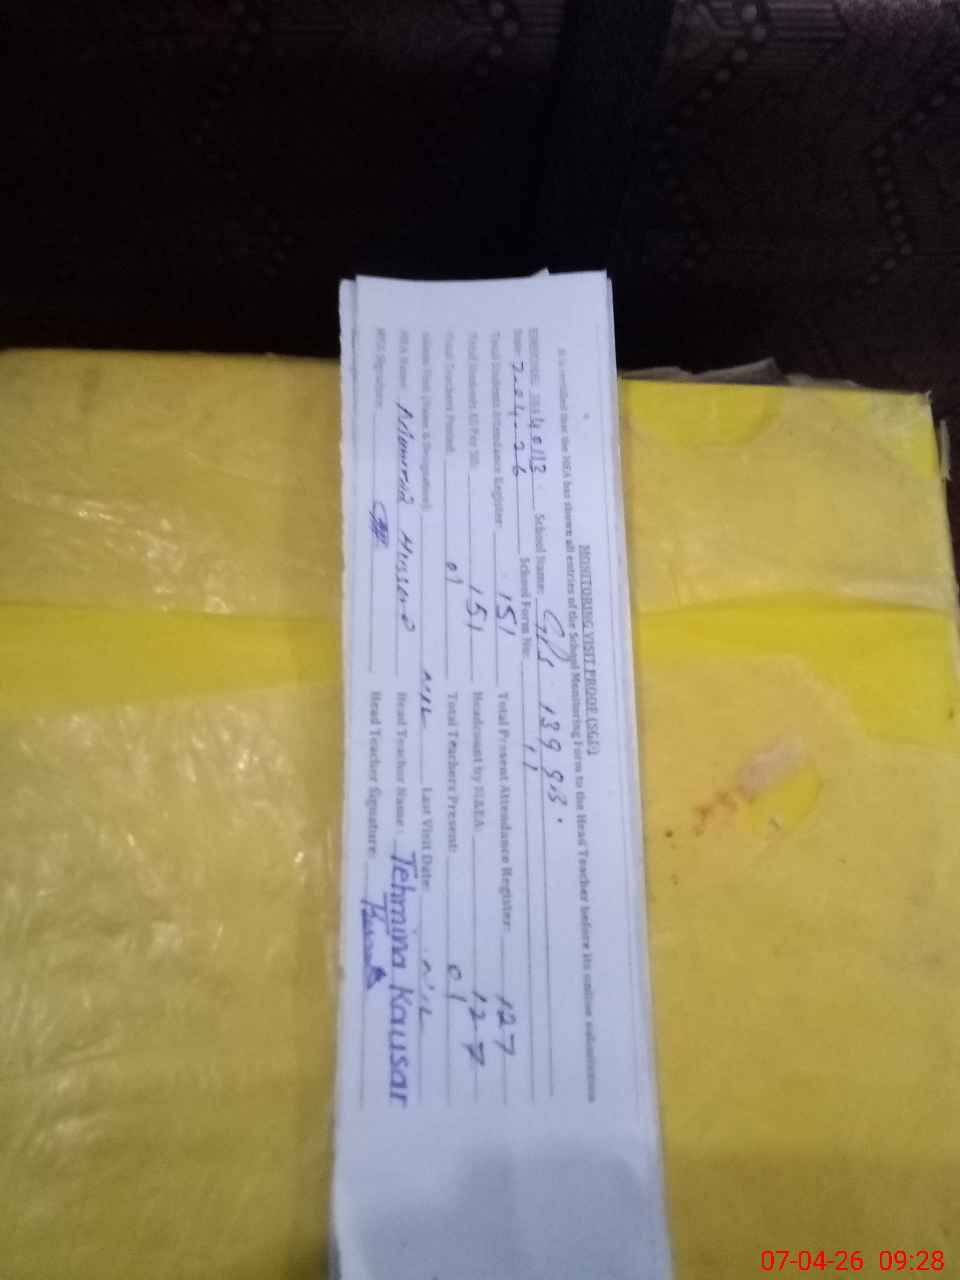 MONITORING VISIT PROOF (SGF)
It is certified that the MEA has shown all entries of the School Monitoring Form to the Head Teacher before its online submission
40113 School Name: GPS 139 GB.
Date: 7-04-26 School Form No: 11
Total Students Attendance Register: 151 Total Present Attendance Register: 127
Total Students 151 Headcount by M&EA: 127
Total Teachers Posted: 01 Total Teachers Present: 01
(Name & Designation): NIL Last Visit Date: NIL
MEA Name: Head Teacher Name: Tehmina Kausar
MEA Signature: Head Teacher Signature:
07-04-26 09:28